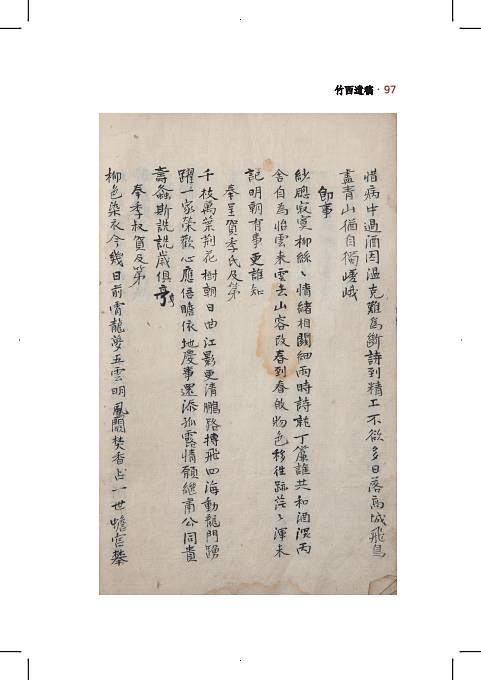 竹西遺稿 · 97
惜病中過酒因溫克難爲斷詩到精工不欲多日落高城飛鳥
盡青山猶自獨嵯峨
卽事
紗窓寂寞柳絲〻情緖相關細雨時詩就丁簾誰共和酒濃丙
舍自爲怡雲來雲去山容改春到春放物色移徃跡茫〻渾未
記明朝有事更誰知
奉呈賀季氏及第
千枝萬葉荊花樹朝日曲江影更淸鵬路摶飛四海動龍門踴
躍一家榮歡心應倍瞻依地慶事還添孤露情願繼甫公同貴
壽螽斯詵詵歲俱亨
奉季叔賀及第
柳色染衣今幾日前宵龍夢五雲明鳳闕焚香占一世蟾宮攀